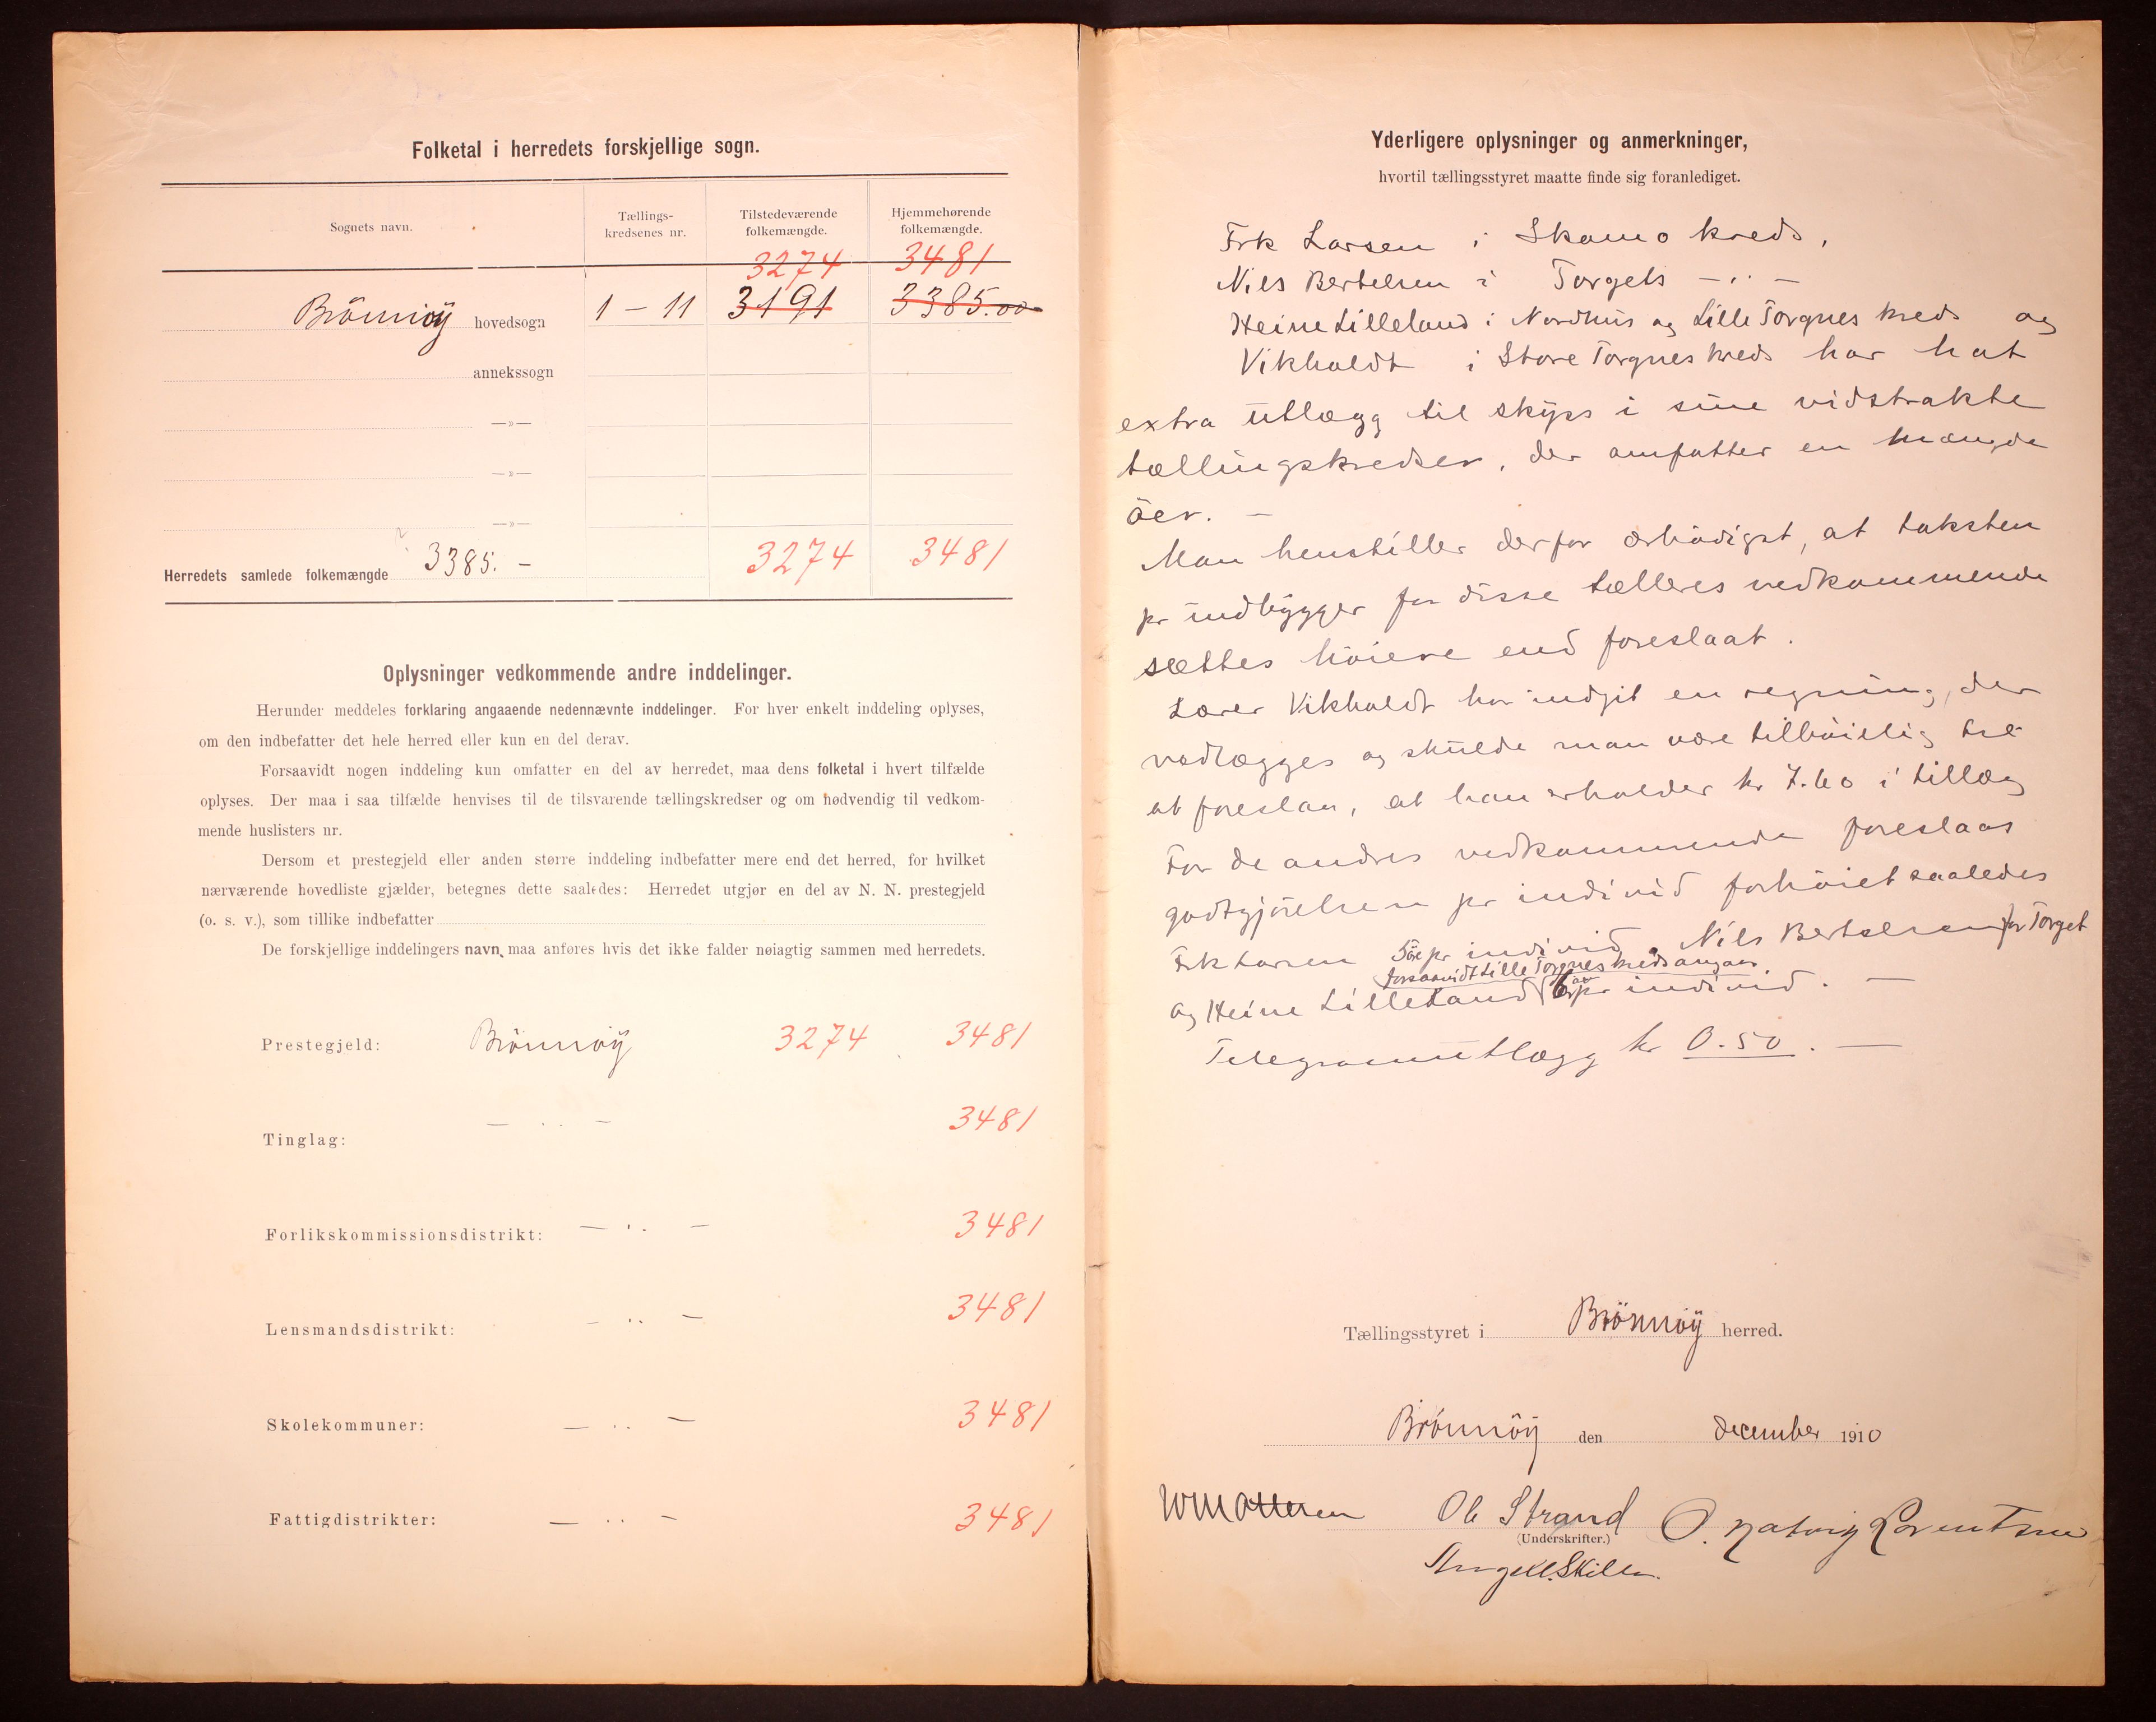 Folketal i herredets forskjellige sogn.
Sognets navn.
Tællings-
kredsenes nr.
Tilstedeværende
folkemængde.
Hjemmehørende
folkemængde.
3274 3481
Brönnöÿ hovedsogn 1 - 11 3191 3385.00
annekssogn
—»—
—»—
—»—
Herredets samlede folkemængde 3385. - 3274 3481
Oplysninger vedkommende andre inddelinger.
Herunder meddeles forklaring angaaende nedennævnte inddelinger. For hver enkelt inddeling oplyses,
om den indbefatter det hele herred eller kun en del derav.
Forsaavidt nogen inddeling kun omfatter en del av herredet, maa dens folketal i hvert tilfælde
oplyses. Der maa i saa tilfælde henvises til de tilsvarende tællingskredser og om nødvendig til vedkom-
mende huslisters nr.
Dersom et prestegjeld eller anden større inddeling indbefatter mere end det herred, for hvilket
nærværende hovedliste gjælder, betegnes dette saaledes: Herredet utgjør en del av N. N. prestegjeld
(o. s. v.), som tillike indbefatter
De forskjellige inddelingers navn maa anføres hvis det ikke falder nøiagtig sammen med herredets.
Prestegjeld: Brönnöÿ 3274 3481
Tinglag: — .. — 3481
Forlikskommissionsdistrikt: — .. — 3481
Lensmandsdistrikt: — .. — 3481
Skolekommuner: — .. — 3481
Fattigdistrikter: — .. — 3481
Yderligere oplysninger og anmerkninger,
hvortil tællingsstyret maatte finde sig foranlediget.
Frk Larsen i Skomo kreds,
Nils Bertelsen i Torgets — .. —
Heine Lilleland i Nordhus og Lille Torgnes kreds og
Vikholdt i Store Torgnes kreds har hat
extra utlægg til skyss i sine vidstrakte
tællingskredser, der omfatter en mængde
öer. —
Man henstiller derfor ærbödigst, at taksten
pr indbygger for disse tælleres vedkommende
sættes höiere end foreslaat.
Lærer Vikholdt har indgit en regning, der
vedlægges og skulde man være tilböielig til
at foreslaa, at han erholder kr 7.60 i tillæg
For de andres vedkommende foreslaas
godtgjörelsen pr individ forhöiet saaledes
Frk Larsen 5 öre pr individ, Nils Bertelsen for Torget
forsaavidt Lille Torgnes kreds angaar
og Heine Lilleland 6 öre pr individ. —
Telegramutlægg kr 0.50. —
Tællingsstyret i Brönnöÿ herred.
Brönnöÿ den december 1910
Ole Strand
(Underskrifter.)